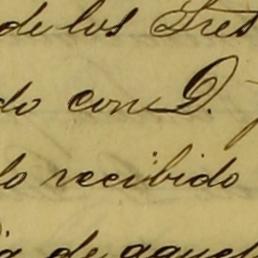 de los Tres
do con D.
lo recibido
de aquel